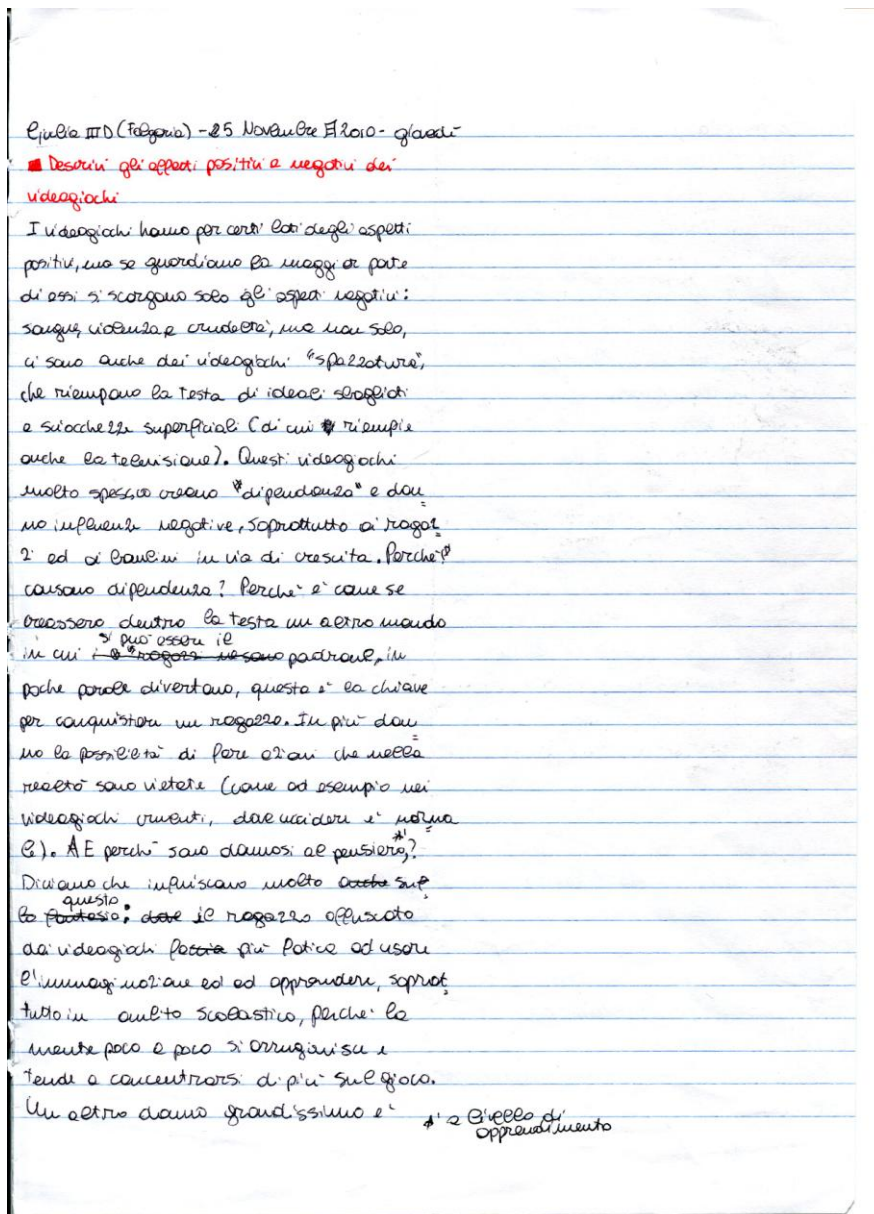 Giulia III D (Folgaria) - 25 Novembre 2010 - giovedì
Descrivi gli effetti positivi e negativi dei
videogiochi
I videogiochi hanno per certi lati degli aspetti
positivi, ma se guardiamo la maggior parte
di essi si scorgono solo gli aspetti negativi:
sangue, violenza e crudeltà, ma non solo,
ci sono anche dei videogiochi "spazzatura",
che riempono la testa di ideali sbagliati
e sciocchezze superficiali (di cui riempie
anche la televisione). Questi videogiochi
molto spesso creano "dipendenza" e dan
no influenze negative, soprattutto ai ragaz
zi ed ai bambini in via di crescita. Perché
causano dipendenza? Perché è come se
creassero dentro la testa un altro mondo
si può essere il
in cui padrone, in
poche parole divertono, questa è la chiave
per conquistare un ragazzo. In più dan
no la possibilità di fare azioni che nella
realtà sono vietate (come ad esempio nei
videogiochi cruenti, dove uccidere è norma
le). E perché sono dannosi al pensiero,*¹?
Diciamo che influiscono molto anche sul
questo
la fantasia; dove il ragazzo offuscato
dai videogiochi faccia più fatica ad usare
l'immaginazione ed ad apprendere, soprat
tutto in ambito scolastico, perché la
mente poco a poco si arrugginisce e
tende a concentrarsi di più sul gioco.
Un altro danno grandissimo è
*¹ a livello di
apprendimento